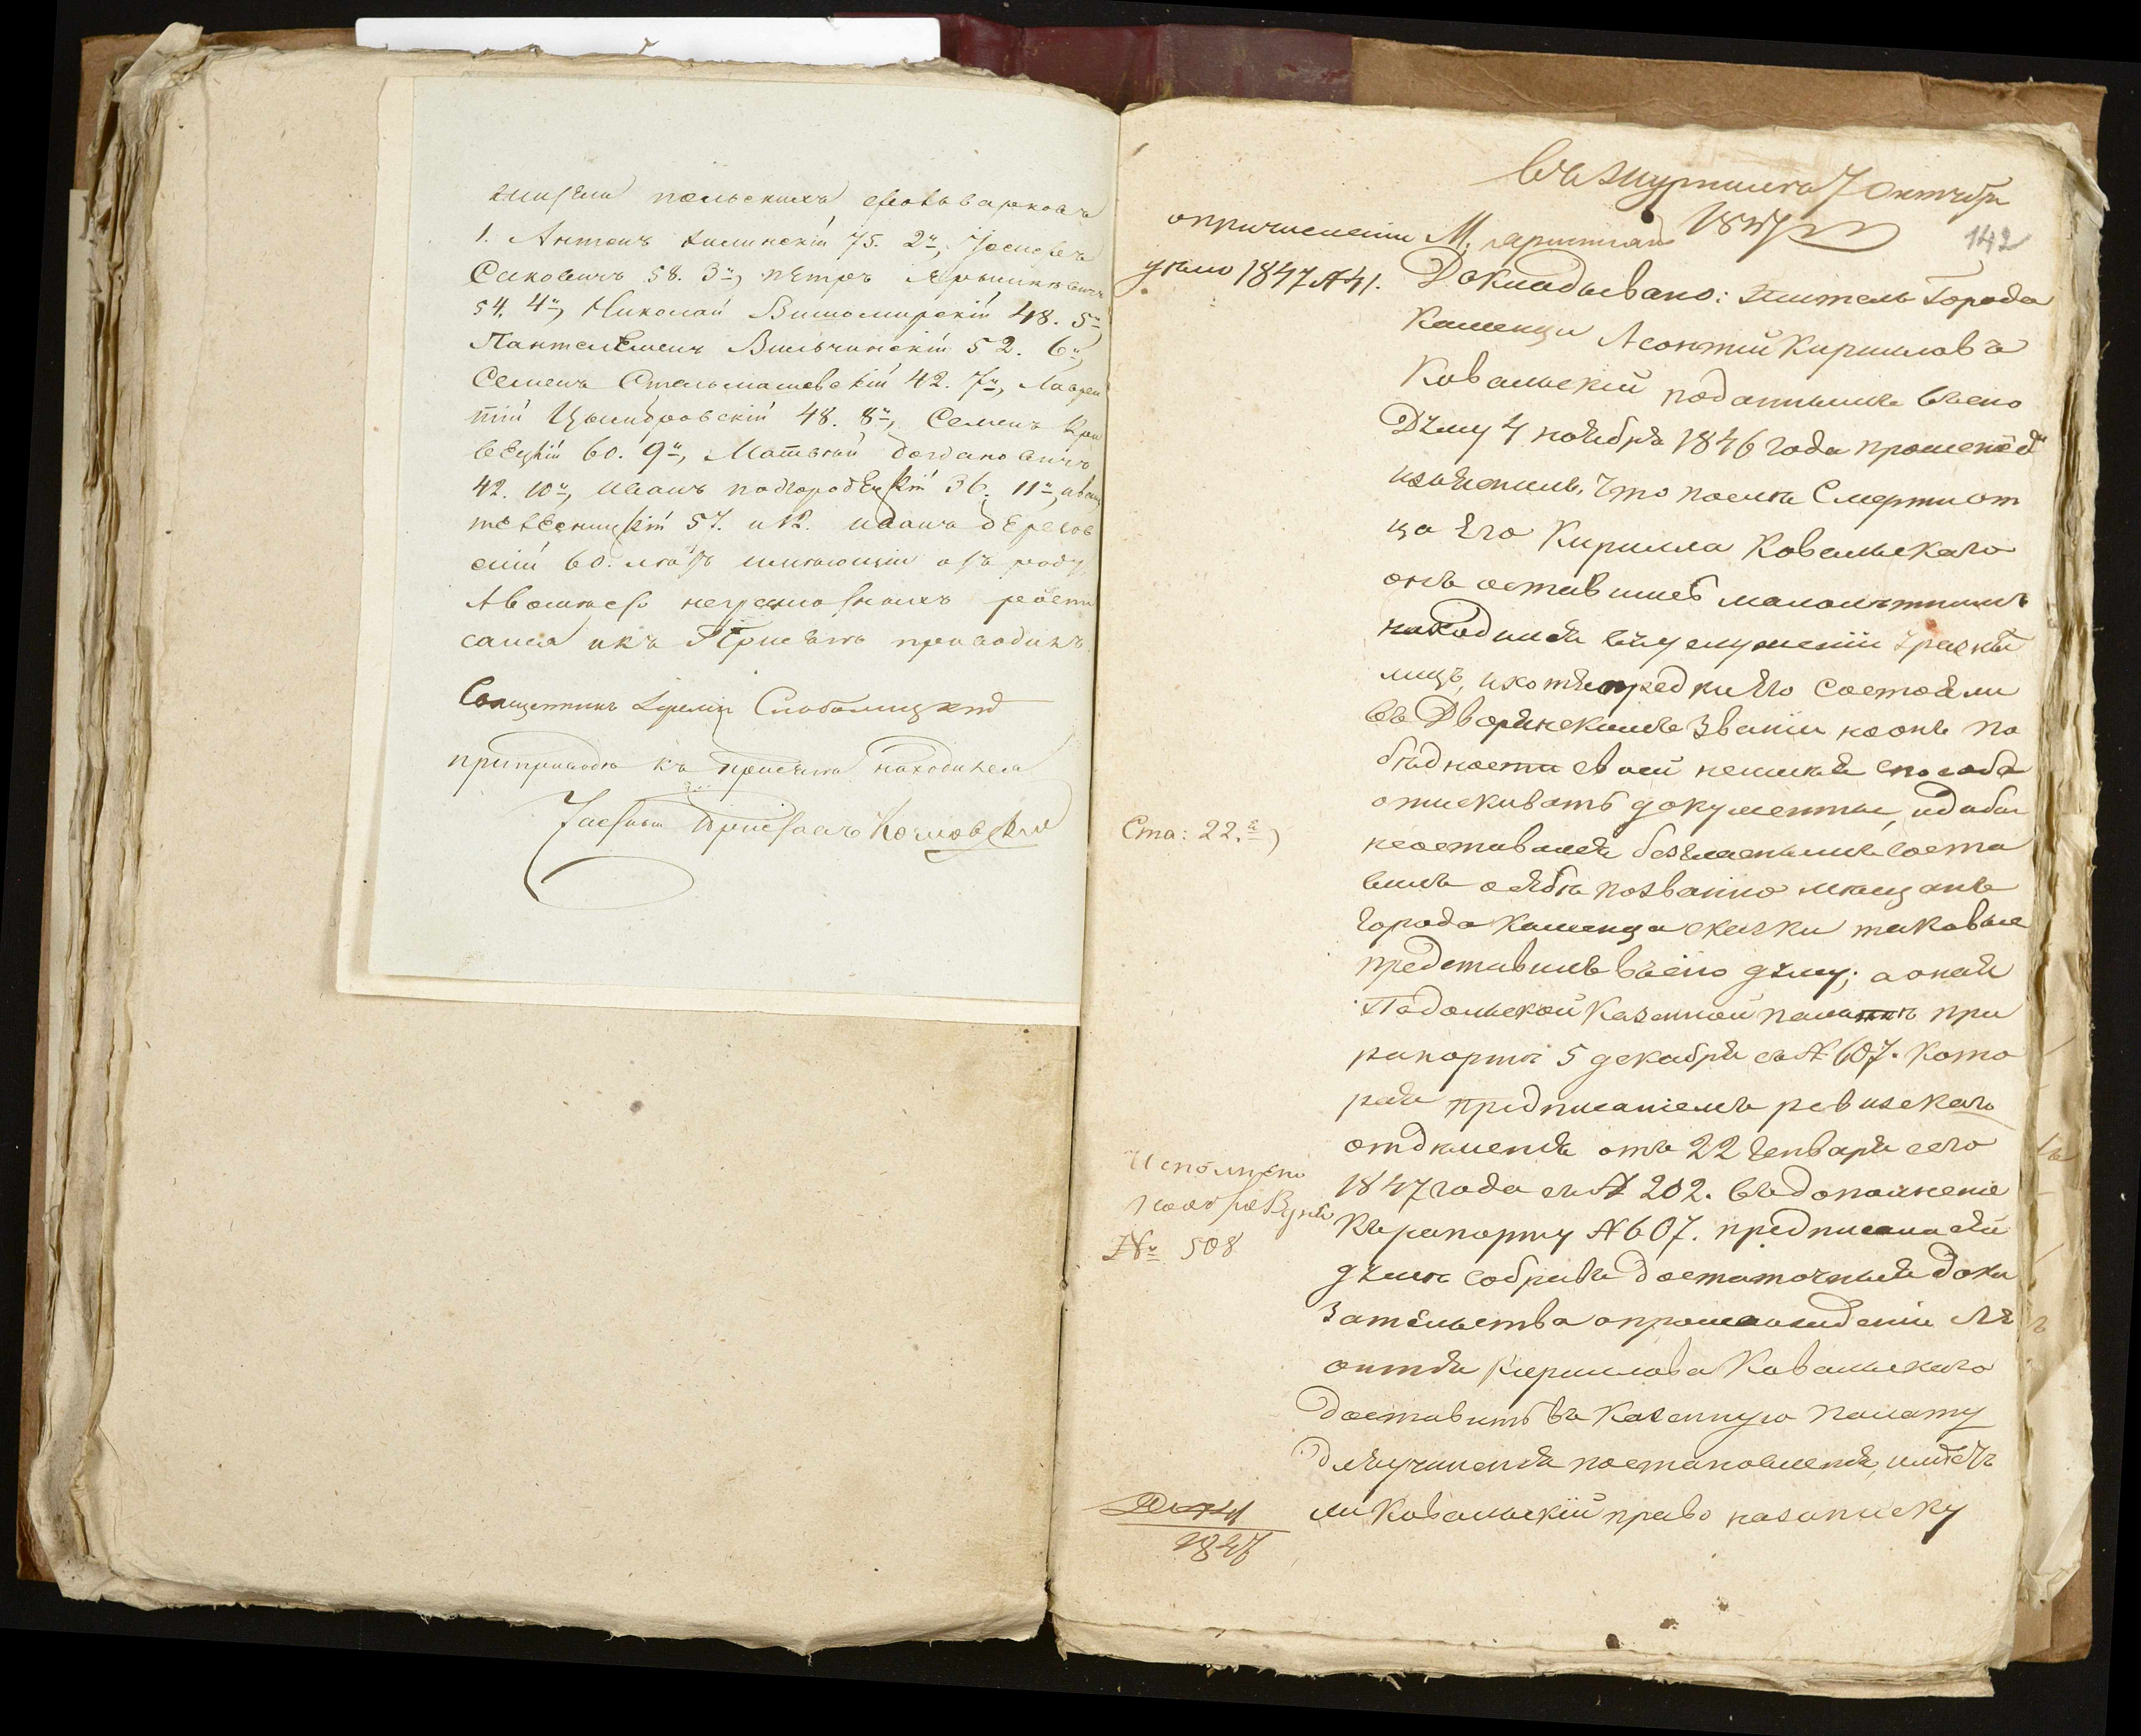 жители польскихъ фольварковъ
1. Антонъ 75. 2й,
Саковичъ 58. 3й, Петръ
54. 4й, Николай 48. 5й
Пантелемонъ Вильчинскій 52. 6й,
Семенъ Стельмашевскій 42. 7й, Лаврен
тій 48. 8й, Семенъ Кри
вецкій 60. 9й, Матвѣй Богдановичъ
42. 10й, Иванъ подгородецкій 36. 11й, иванъ
57. и 12. иванъ
скій 60. лѣтъ имѣющіи отъ роду,
саися икъ Присягѣ приводилъ.
Священникъ
приприводѣ къ присягѣ находился
142
Октября
1847
опричисленіи
дѣло 1847 № 41.
Докладывано: житель Города
Каменца Леонтій Кирилловъ
Ковальскій поданнымъ всію
Думу 4 ноября 1846 года прошеніемъ
изъяснилъ, что послѣ Смерти от
ца Его Кирилла Ковальскаго
онъ оставшись малолѣтнимъ
находился вуслуженіи уразныхъ
лицъ, ихотя предки Его Состояли
въ Дворянскомъ Званіи но онъ по
бѣдности своей неимѣя способа
отыскивать документы, идабы
неоставался безгласнымъ соста
вилъ осебѣ позванію мѣщанъ
Города Каменца сказки таковые
представилъ всію думу; а оная
Подольской Казенной палатѣ при
рапортѣ 5 декабря за № 607. Кото
рая предписаніемъ ревизскаго
отдѣленія отъ 22 Генваря сего
1847 года за № 202. въ дополненіе
Къ рапорту № 607. предписала ей
думѣ собравъ достаточныя дока
зательства опроисхожденіи Ле
онтія Кириллова Ковальскаго
доставить въ Казенную Палату
для учиненія постановленія, имѣетъ
ли Ковальскій право назаписку
Ста: 22.й)
Исполнено
№ 508
1847